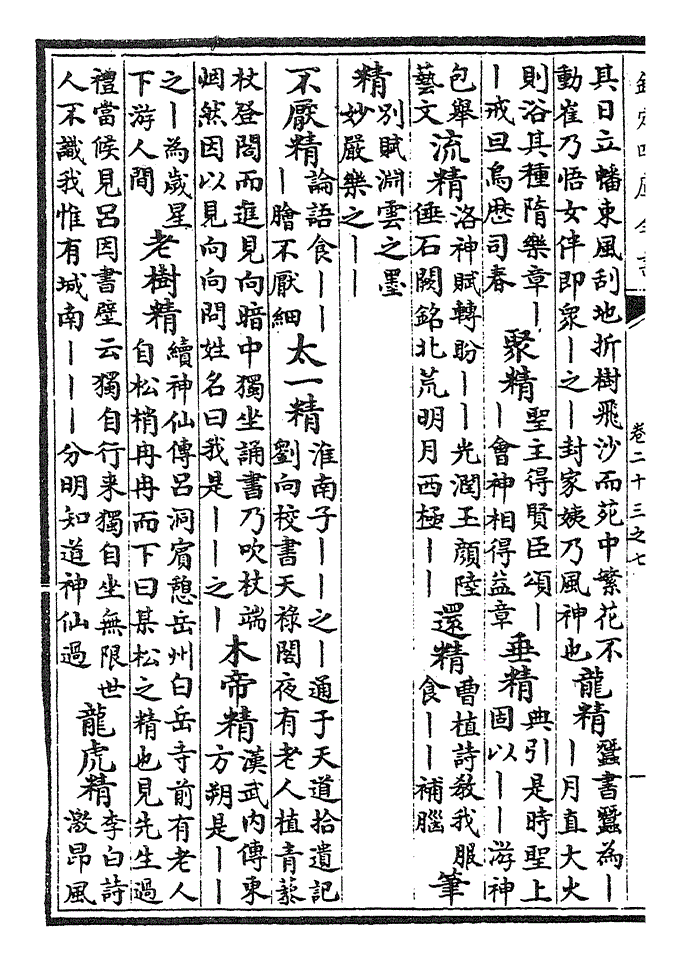 卷二十三之七
其日立幡東風刮地折樹飛沙而苑中繁花不
動崔乃悟女伴即衆丨之丨封家姨乃風神也
龍精
蠶書蠶為丨
丨月直大火
則浴其種隋樂章丨
丨戒旦鳥歴司春
聚精
聖主得賢臣頌丨
丨會神相得益章
垂精
典引是時聖上
固以丨丨游神
包舉
藝文
流精
洛神賦轉盼丨丨光潤玉顔陸
倕石闕銘北荒明月西極丨丨
還精
曹植詩教我服
食丨丨補腦
筆
精
别賦淵雲之墨
妙嚴樂之丨丨
不厭精
論語食丨丨
丨膾不厭細
太一精
淮南子丨丨之丨通于天道拾遺記
劉向校書天禄閣夜有老人植青藜
杖登閣而進見向暗中獨坐誦書乃吹杖端
烟然因以見向向問姓名曰我是丨丨之丨
木帝精
漢武内傳東
方朔是丨丨
之丨為歲星
下游人間
老樹精
續神仙傳吕洞賓憩岳州白岳寺前有老人
自松梢冉冉而下曰某松之精也見先生過
禮當候見吕因書壁云獨自行来獨自坐無限世
人不識我惟有城南丨丨丨分明知道神仙過
龍虎精
李白詩
激昂風